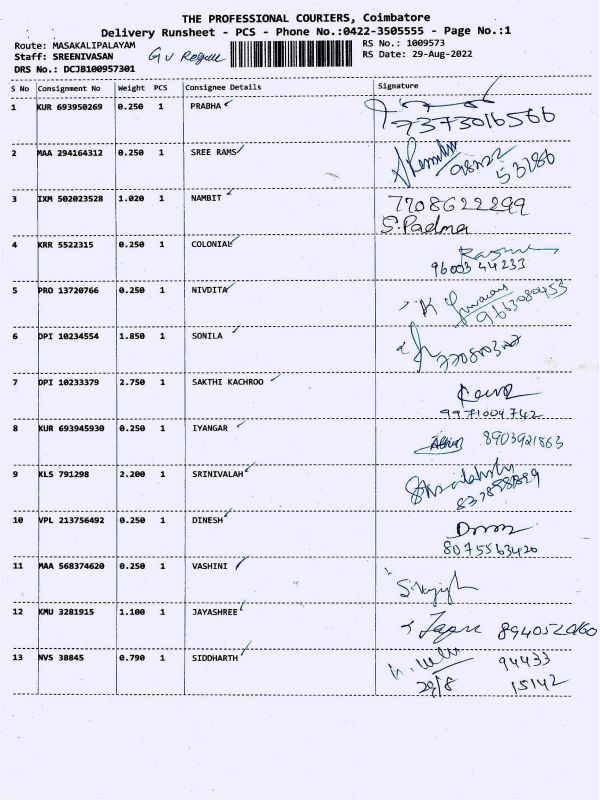 THE PROFESSIONAL COURIERS, Coimbatore
Delivery Runsheet - PCS - Phone No.:0422-3505555 - Page No.:1
Route: MASAKALIPALAYAM RS No.: 1009573
Staff: SREENIVASAN G V RS Date: 29-Aug-2022
DRS No.: DCJB100957301
S No Consignment No Weight PCS Consignee Details Signature
1 KUR 693950269 0.250 1 PRABHA 7373016566
2 MAA 294164312 0.250 1 SREE RAMS
53286
3 IXM 502023528 1.020 1 NAMBIT 7708622299
S.Padma
4 KRR 5522315 0.250 1 COLONIAL
96003 44233
5 PRO 13720766 0.250 1 NIVDITA K
9663080453
6 DPI 10234554 1.850 1 SONILA
7 DPI 10233379 2.750 1 SAKTHI KACHROO
9971009742
8 KUR 693945930 0.250 1 IYANGAR 8903921863
9 KLS 791298 2.200 1 SRINIVALAH
10 VPL 213756492 0.250 1 DINESH
8075563420
11 MAA 568374620 0.250 1 VASHINI
12 KMU 3281915 1.100 1 JAYASHREE
13 NVS 38845 0.790 1 SIDDHARTH 94433
29/8 15142